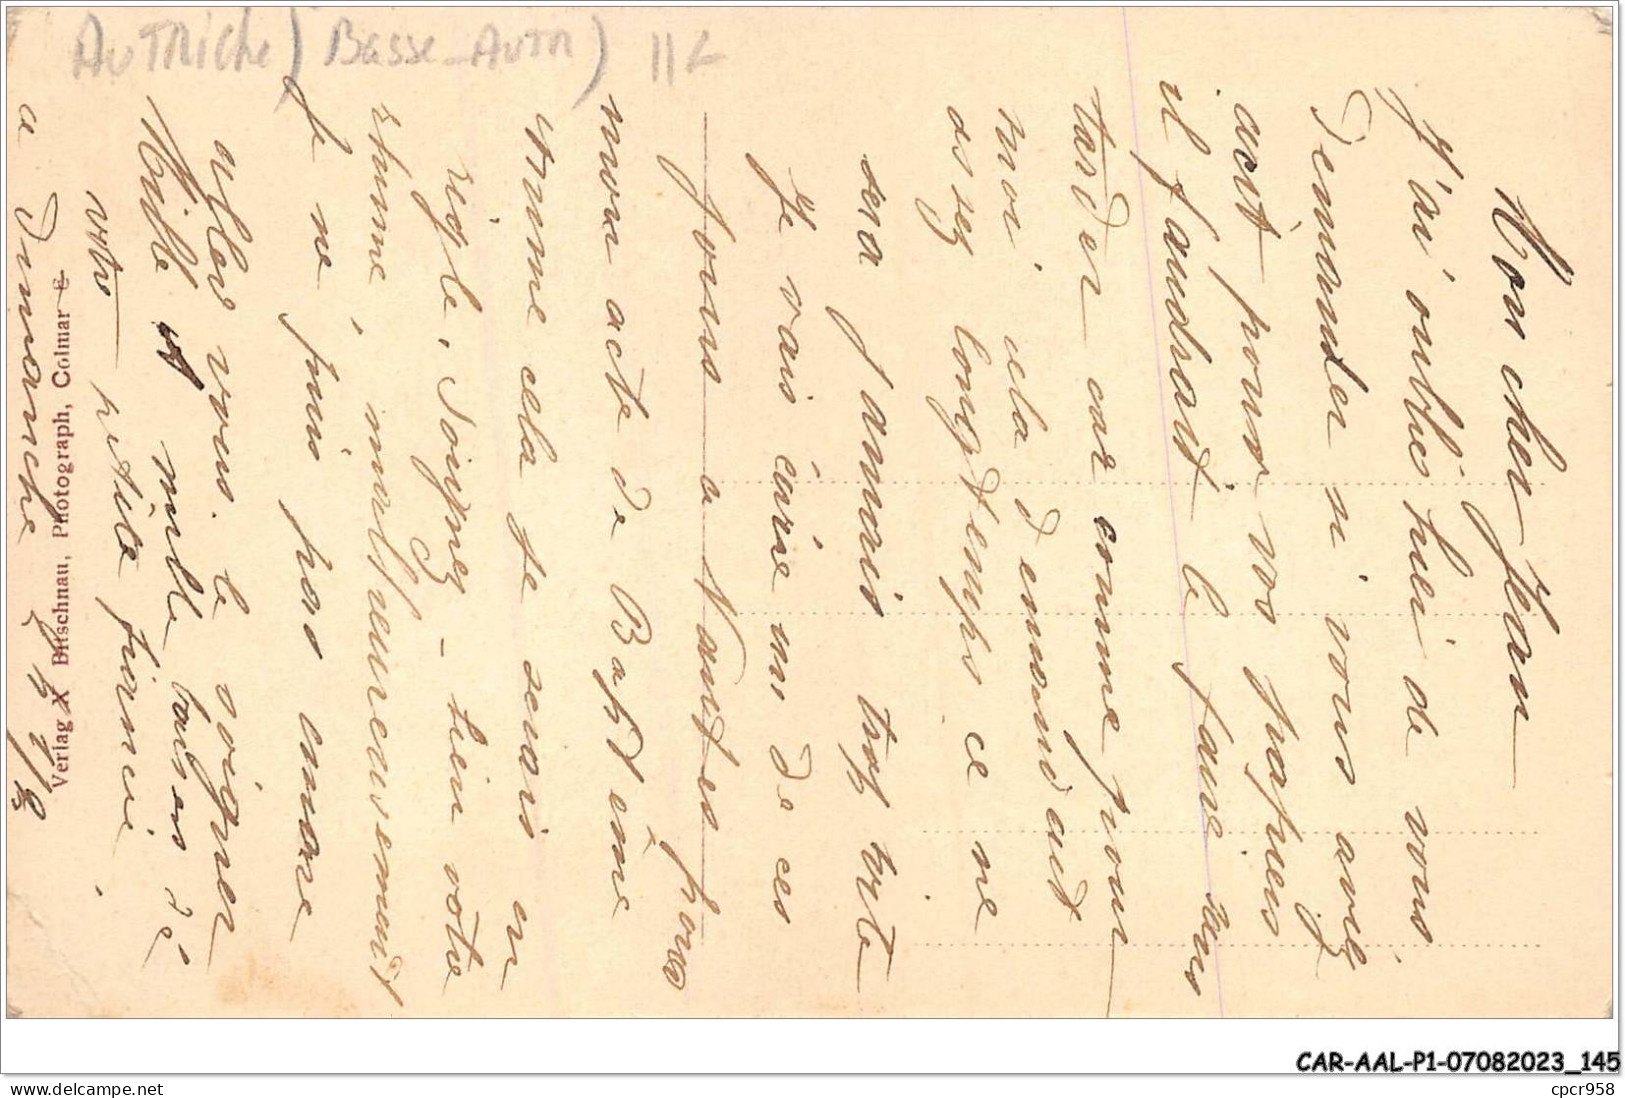 AUTRICHE (Basse-Autr) 11L
Mon cher Jean
J'ai oublié hier de vous
demander si vous avez
écrit pour vos papiers
il faudrait le faire sans
tarder car comme pour
moi cela demandait
assez longtemps ce ne
sera jamais trop tôt
Je vais écrire un de ces
jours a Nantes pour
mon acte de Baptême
comme cela je serais en
règle, Soignez-bien votre
rhume, malheureusement
Je ne puis pas encore
aller vous le soigner
Mille et mille baisers de
votre petite fiancée
a Dimanche
Verlag X Bitschnau, Photograph, Colmar E
CAR-AAL-P1-07082023_145
cpcr958